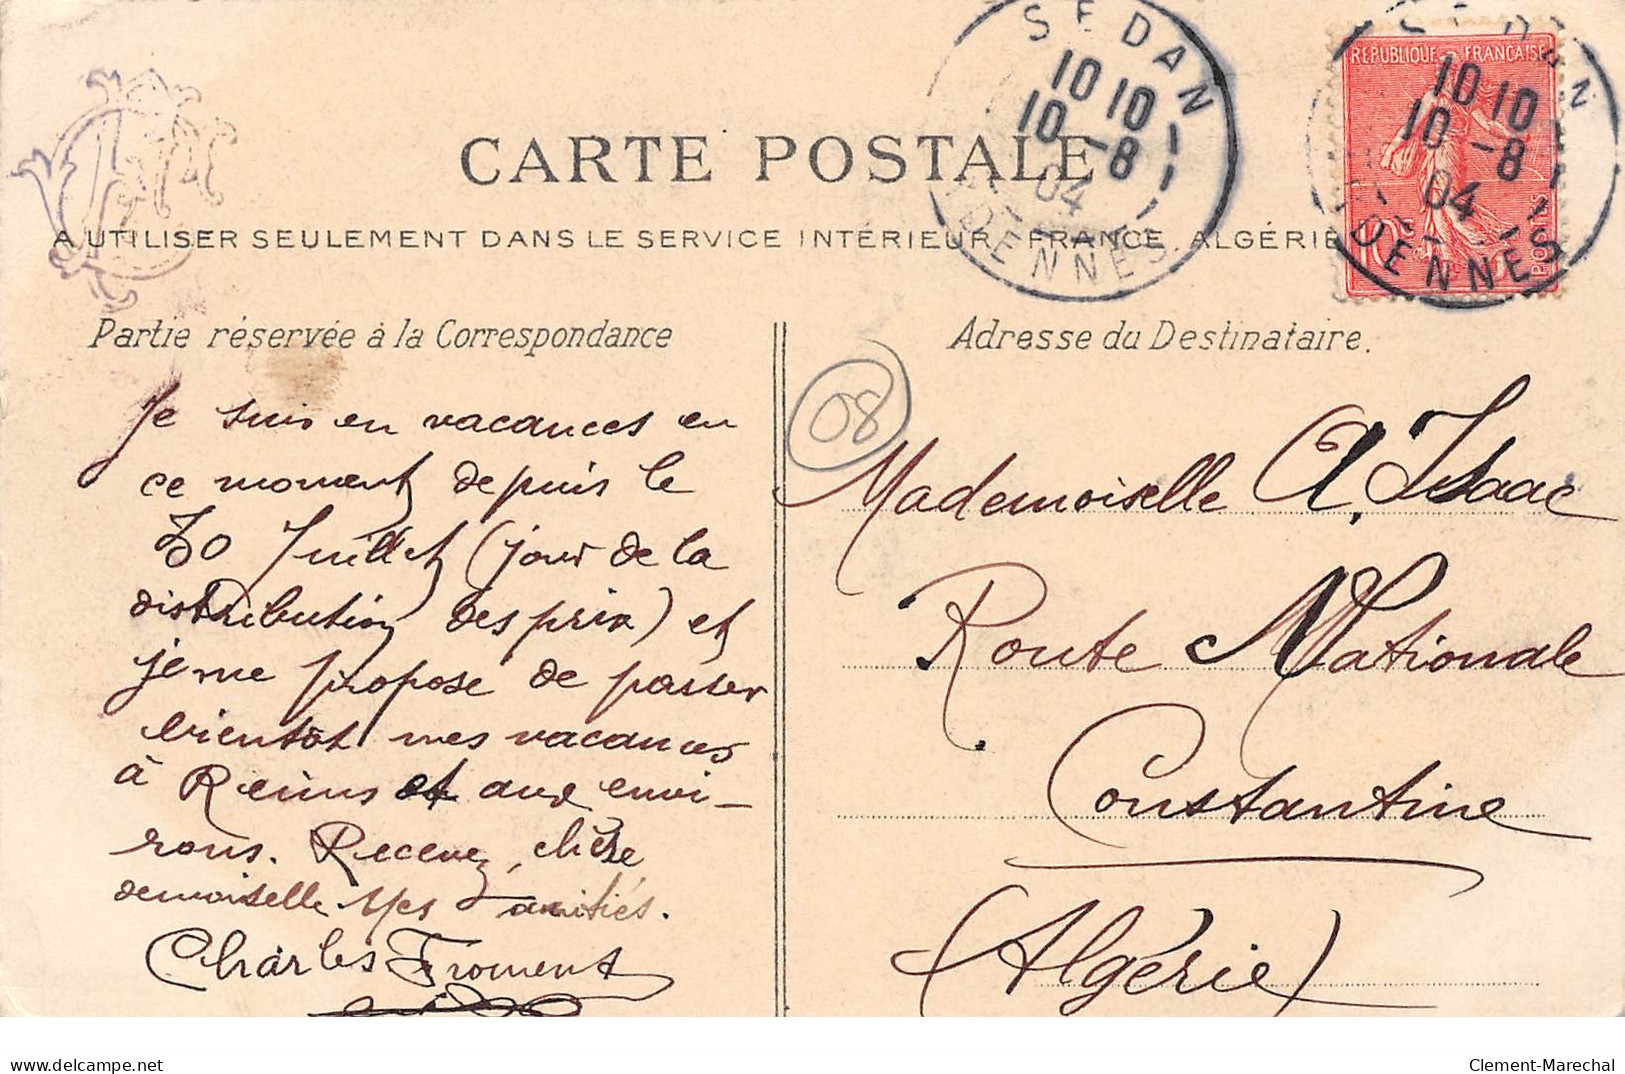 CARTE POSTALE
A UTILISER SEULEMENT DANS LE SERVICE INTÉRIEUR, FRANCE, ALGÉRIE
SEDAN
10 10
10 -8
04
ARDENNES
RÉPUBLIQUE FRANÇAISE
10c
POSTES
SEDAN
10 10
10 -8
04
ARDENNES
Partie réservée à la Correspondance
Je suis en vacances en
ce moment depuis le
30 Juillet (jour de la
distribution des prix) et
je me propose de passer
bientôt mes vacances
à Reims et aux envi-
rons. Recevez, chère
demoiselle mes amitiés.
Charles Froment
Adresse du Destinataire.
08
Mademoiselle A. Isaac
Route Nationale
Constantine
(Algérie)
delcampe.net
Clement-Marechal